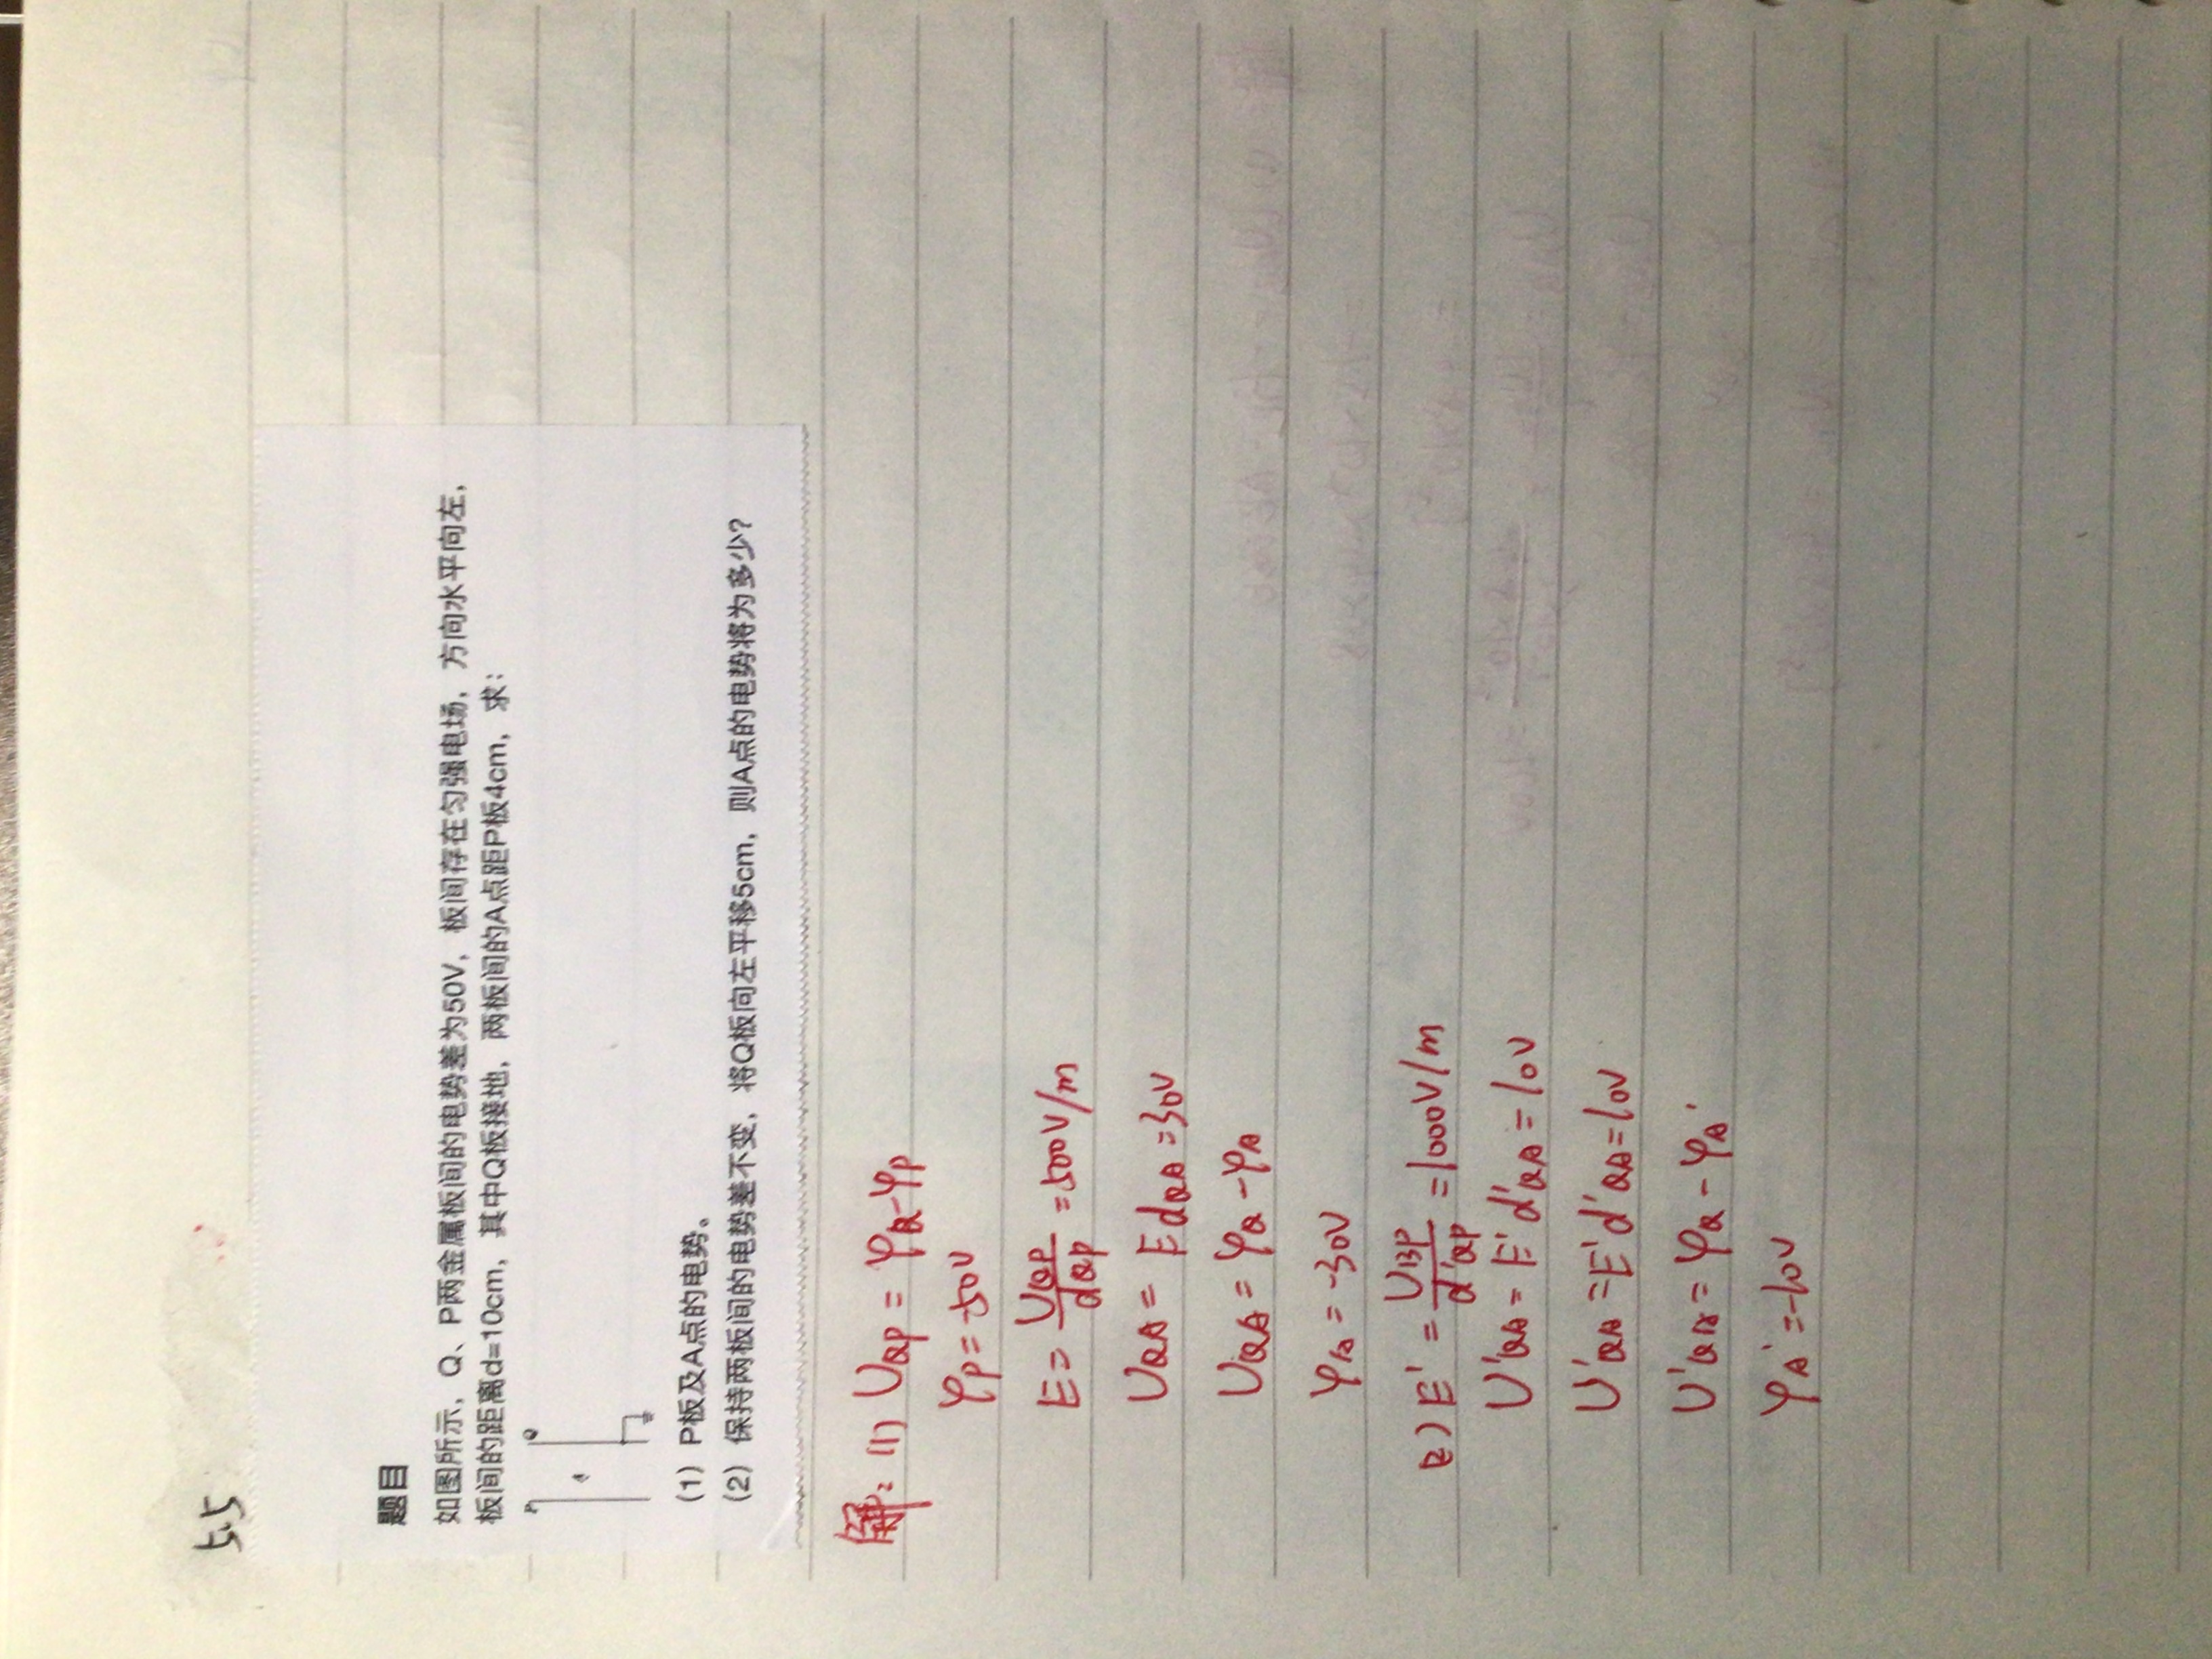 5.5
题目
如图所示，Q、P两金属板间的电势差为50V，板间存在匀强电场，方向水平向左，
板间的距离d=10cm，其中Q板接地，两板间的A点距P板4cm，求：
P Q
A
（1）P板及A点的电势。
（2）保持两板间的电势差不变，将Q板向左平移5cm，则A点的电势将为多少？
解：(1) UQP = φQ-φP
φP = -50V
E = UQP/dQP = 500V/m
UQA = EdQA = 30V
UQA = φQ - φA
φA = -30V
(2) E' = UBP/d'QP = 1000V/m
U'QA = E'd'QA = 10V
U'QA = E'd'QA = 10V
U'QA = φQ - φA'
φA' = -10V